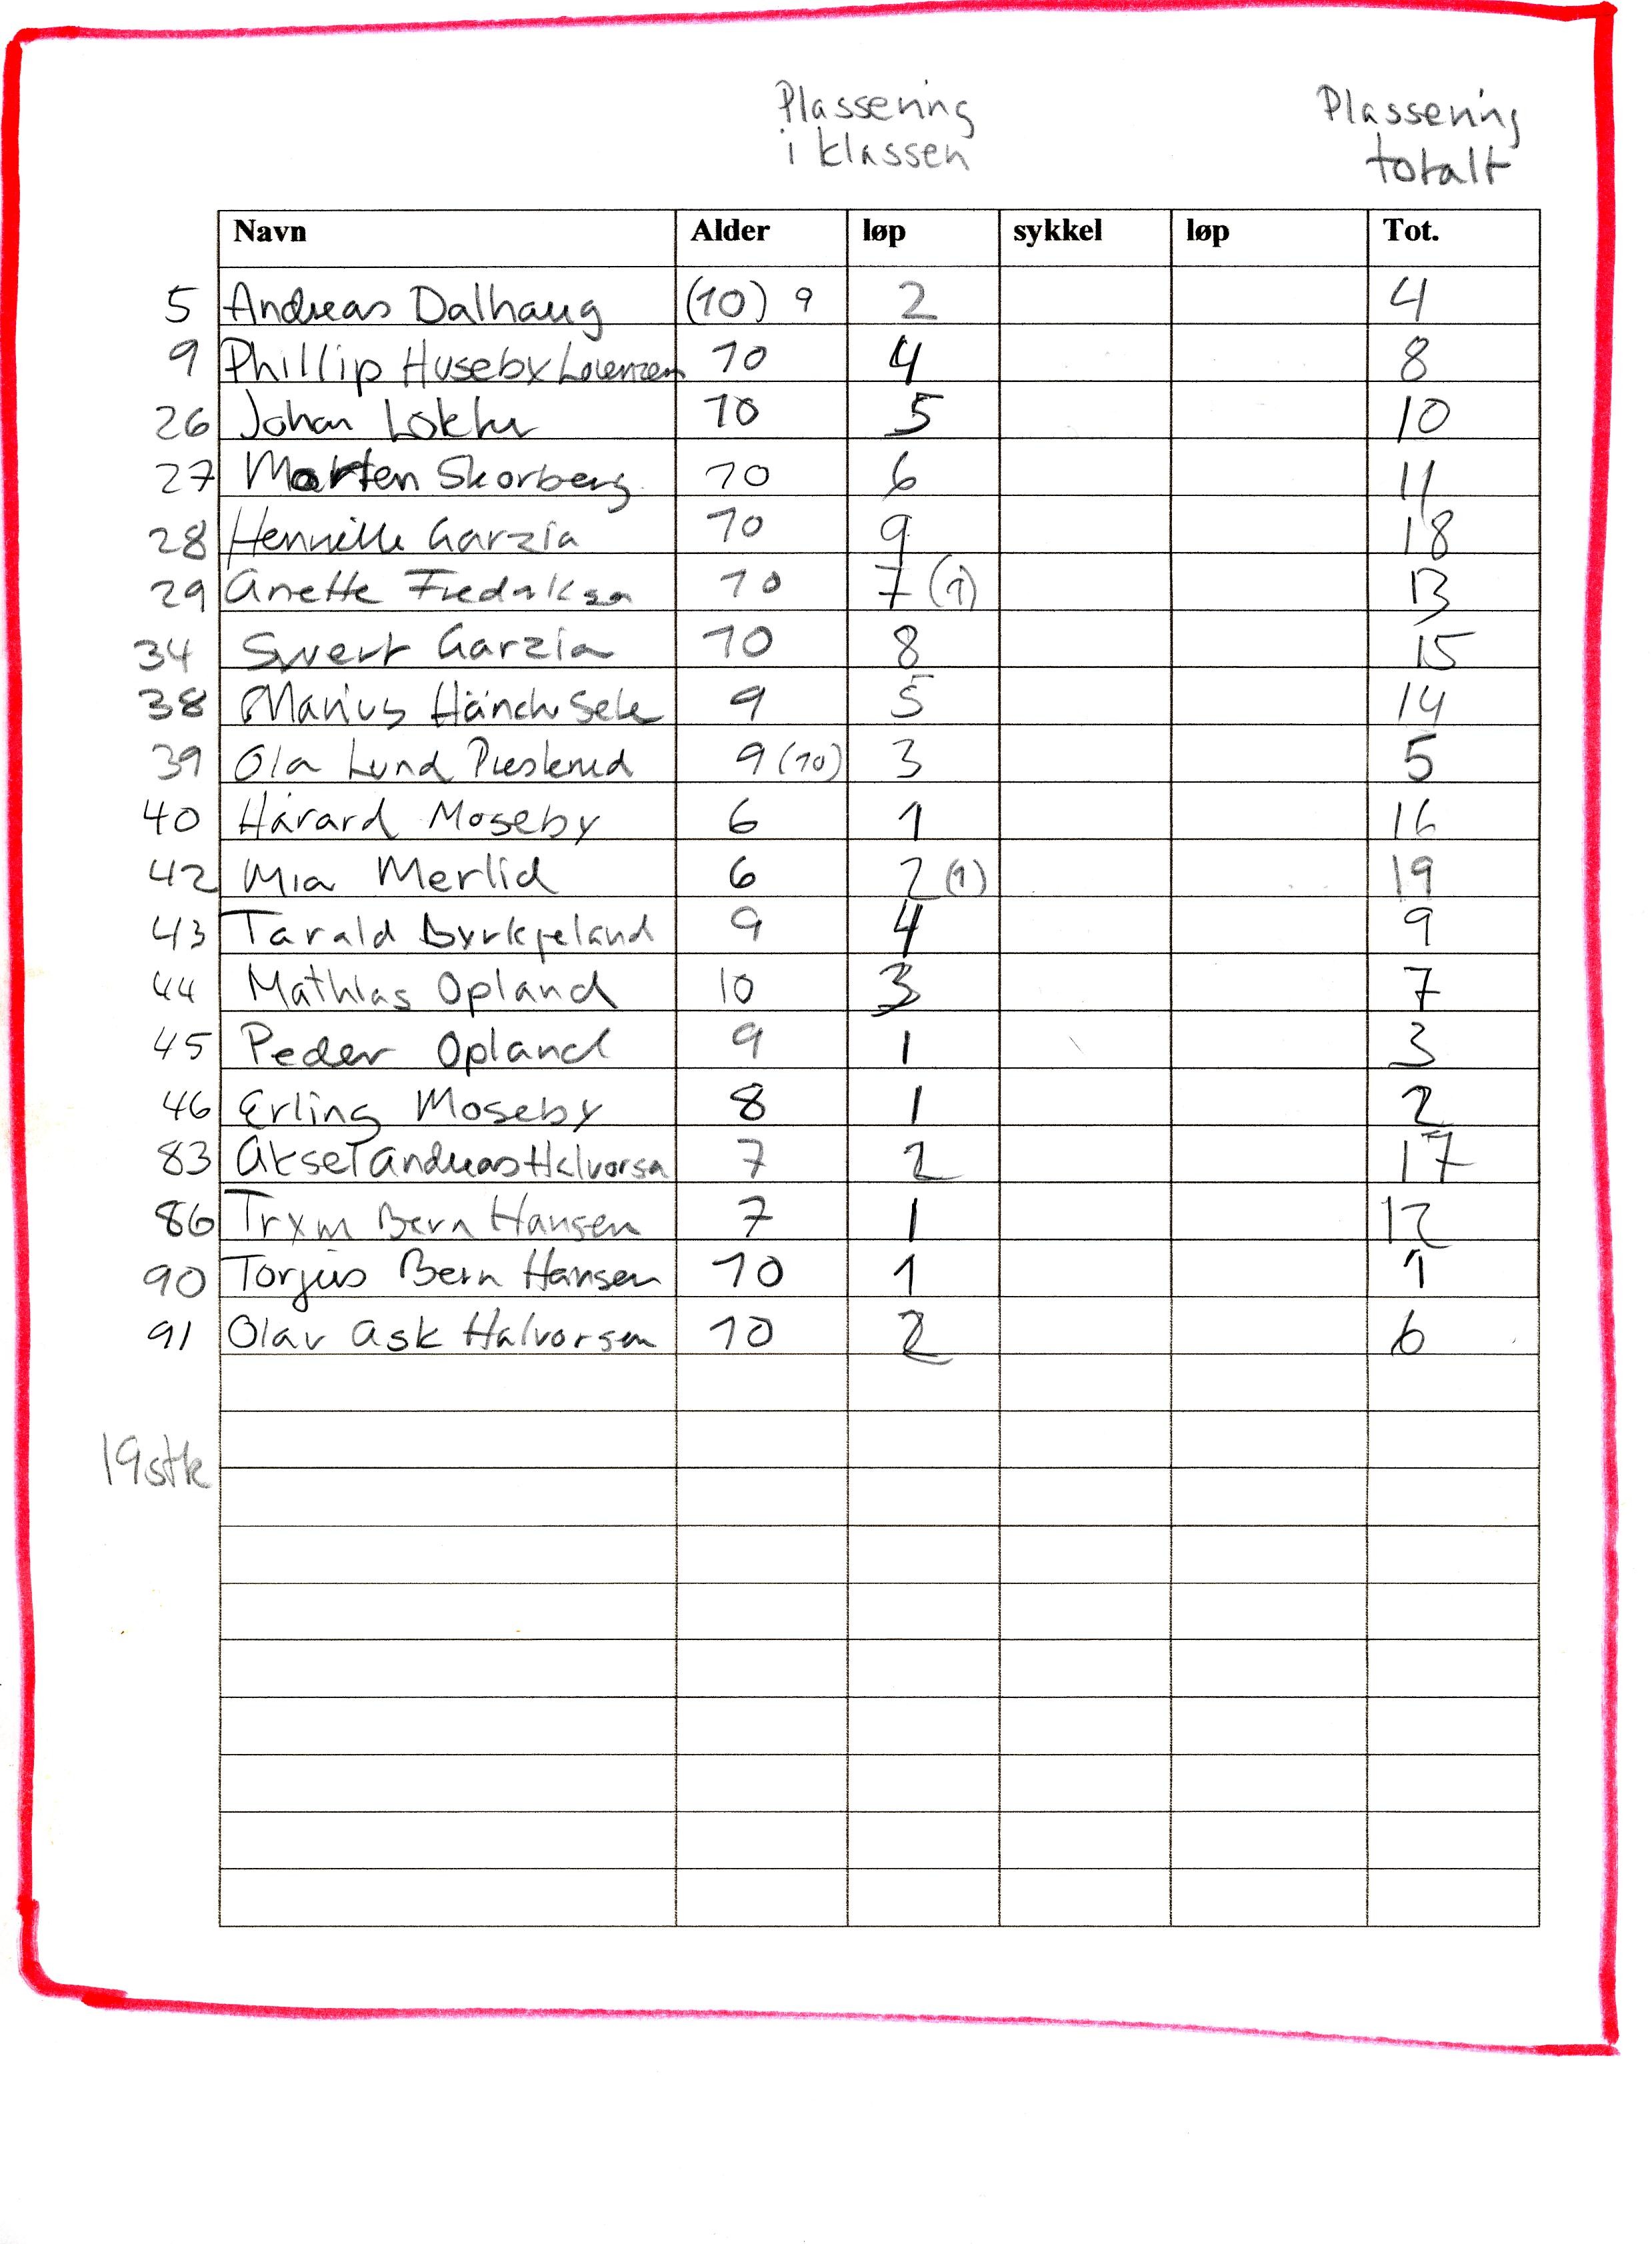 Plassering
i klassen
Plassering
totalt
Navn Alder løp sykkel løp Tot.
5 Andreas Dalhaug (10) 9 2 4
9 Phillip Huseby Lorenzen 10 4 8
26 Johan 10 5 10
27 Morten Skorberg 10 6 11
28 Garzia 10 9 18
29 Anette Fredriksen 10 7 (1) 13
34 Sivert Garzia 10 8 15
38 Marius 9 5 14
39 Ola Lund 9 (10) 3 5
40 Håvard Moseby 6 1 16
42 Mia Merlid 6 2 (1) 19
43 Tarald Byrkjeland 9 4 9
44 Mathias Opland 10 3 7
45 Peder Opland 9 1 3
46 Erling Moseby 8 1 2
83 Aksel Andreas Halvorsen 7 2 17
86 Trym Bern Hansen 7 1 12
90 Torjus Bern Hansen 10 1 1
91 Olav Ask Halvorsen 10 2 6
19 stk